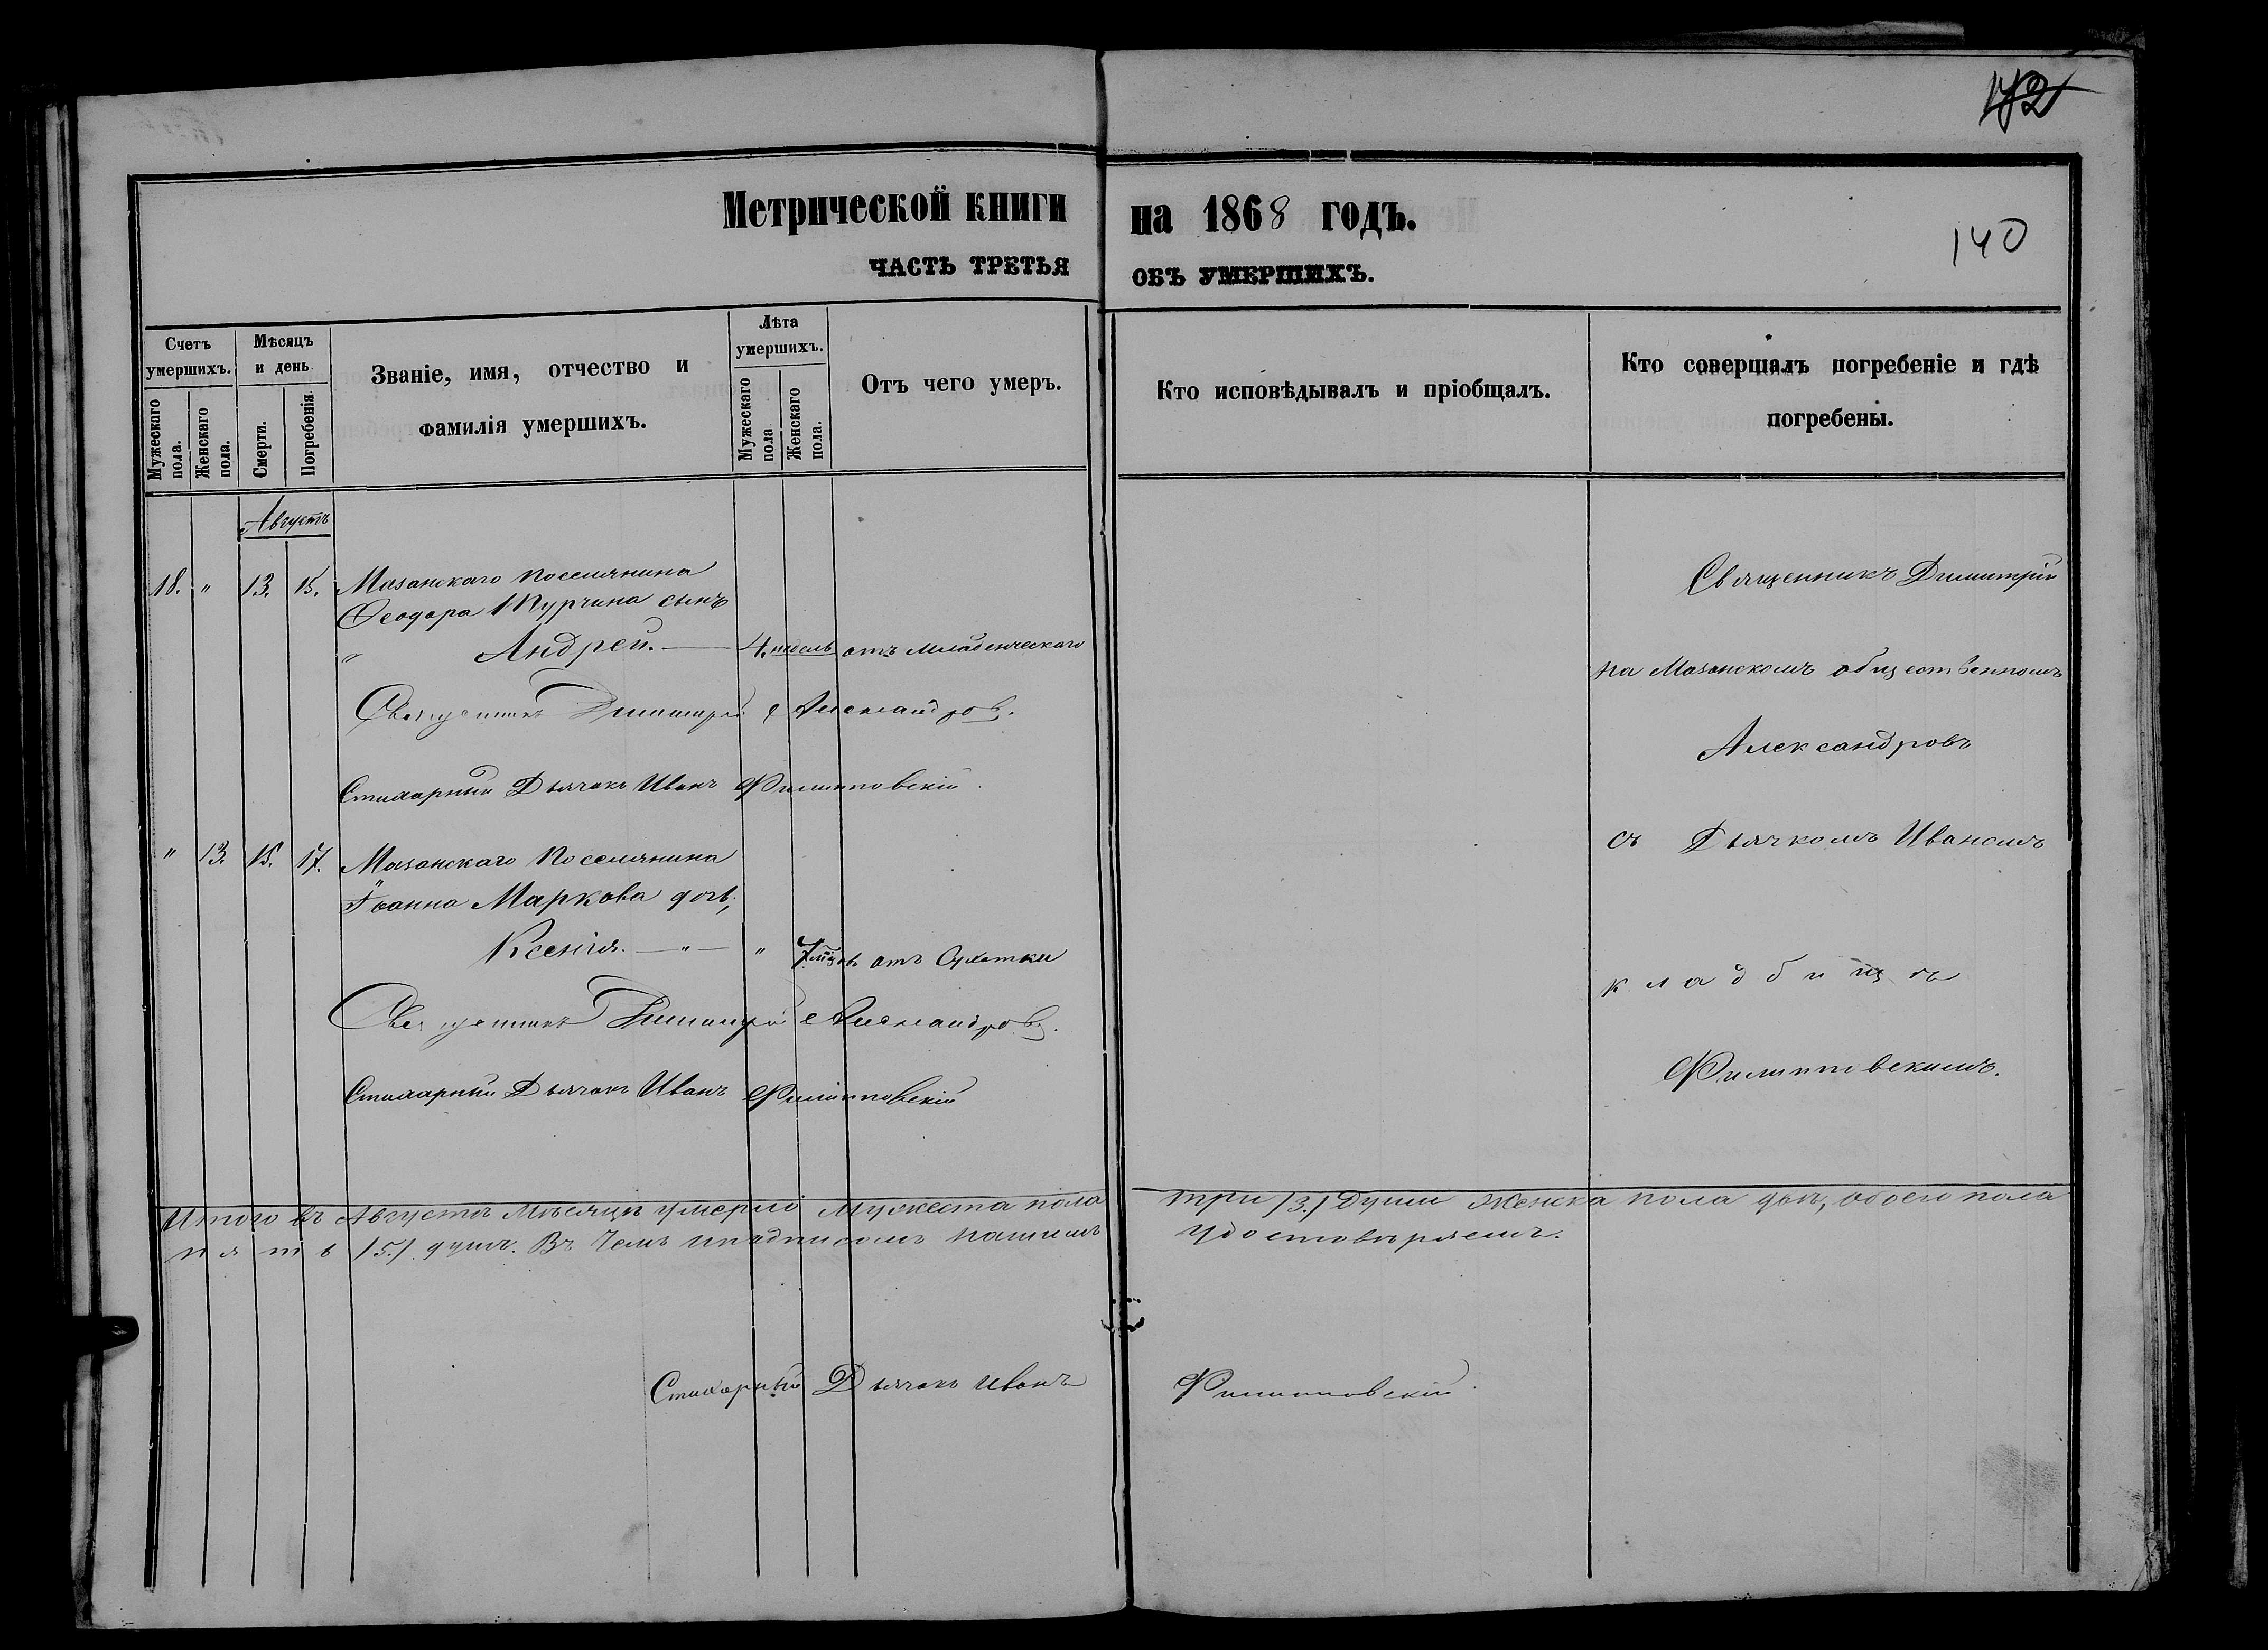 172
Метрической книги на 1868 годъ.
140
ЧАСТЬ ТРЕТЬЯ ОБЪ УМЕРШИХЪ.
Счетъ умершихъ.
Мужескаго пола.
Женскаго пола.
Мѣсяцъ и день
Смерти.
Погребенія.
Званіе, имя, отчество и
фамилія умершихъ.
Лѣта умершихъ.
Мужескаго пола
Женскаго пола.
Отъ чего умеръ.
Кто исповѣдывалъ и пріобщалъ.
Кто совершалъ погребеніе и гдѣ
погребены.
Августъ
18. " 13. 15. Мазанскаго поселянина
Феодора сынъ
" Андрей. — 4. недель отъ младенческаго
Священникъ Димитрій Александровъ.
Стихарный Дьячокъ Иванъ Филипповскій.
" 13. 15. 17. Мазанскаго Поселянина
Іоанна Маркова дочь,
Ксенія. — " — " 7 мцъ отъ Сухотки
Священникъ Димитрій Александровъ.
Стихарный Дьячокъ Иванъ Филипповскій
Священникъ Димитрій
на Мазанскомъ общественномъ
Александровъ
съ Дьячкомъ Иваномъ
кладбищѣ
Филипповскимъ.
Итого въ Августѣ мѣсяцѣ умерло Мужеска пола три /3./ души Женска пола двѣ, обоего пола
пять /5./ душъ. Въ чемъ подписомъ нашимъ удостовѣряемъ.
Стихарный Дьячокъ Иванъ Филипповскій